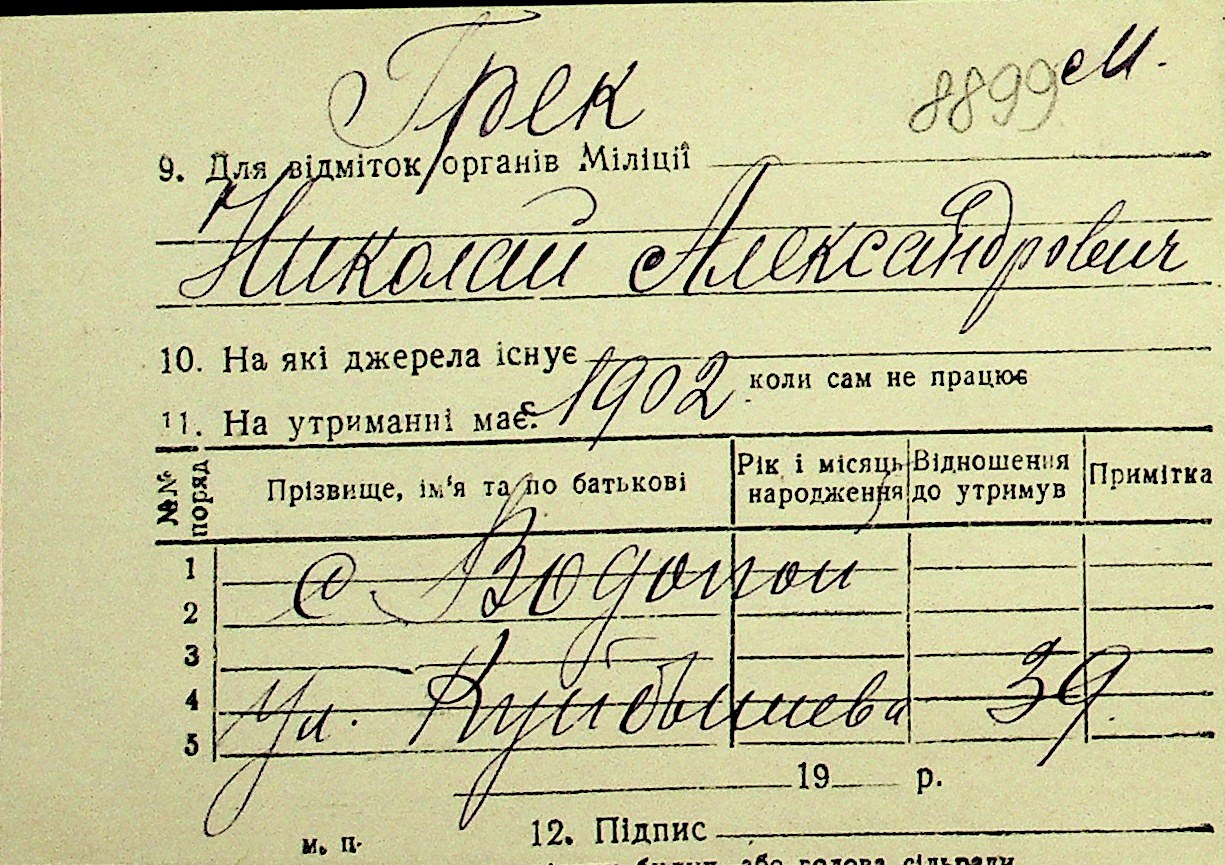 Грек 8899 м.
9. Для відміток органів Міліції
Николай Александрович
10. На які джерела існує
1902 коли сам не працює
11. На утриманні має:
№№ поряд Прізвище, ім'я та по батькові Рік і місяць народження Відношення до утримув Примітка
1
с. Водопой
2
3
4
ул. Куйбышева 39
5
19 р.
м. п. 12. Підпис
або голова сільради